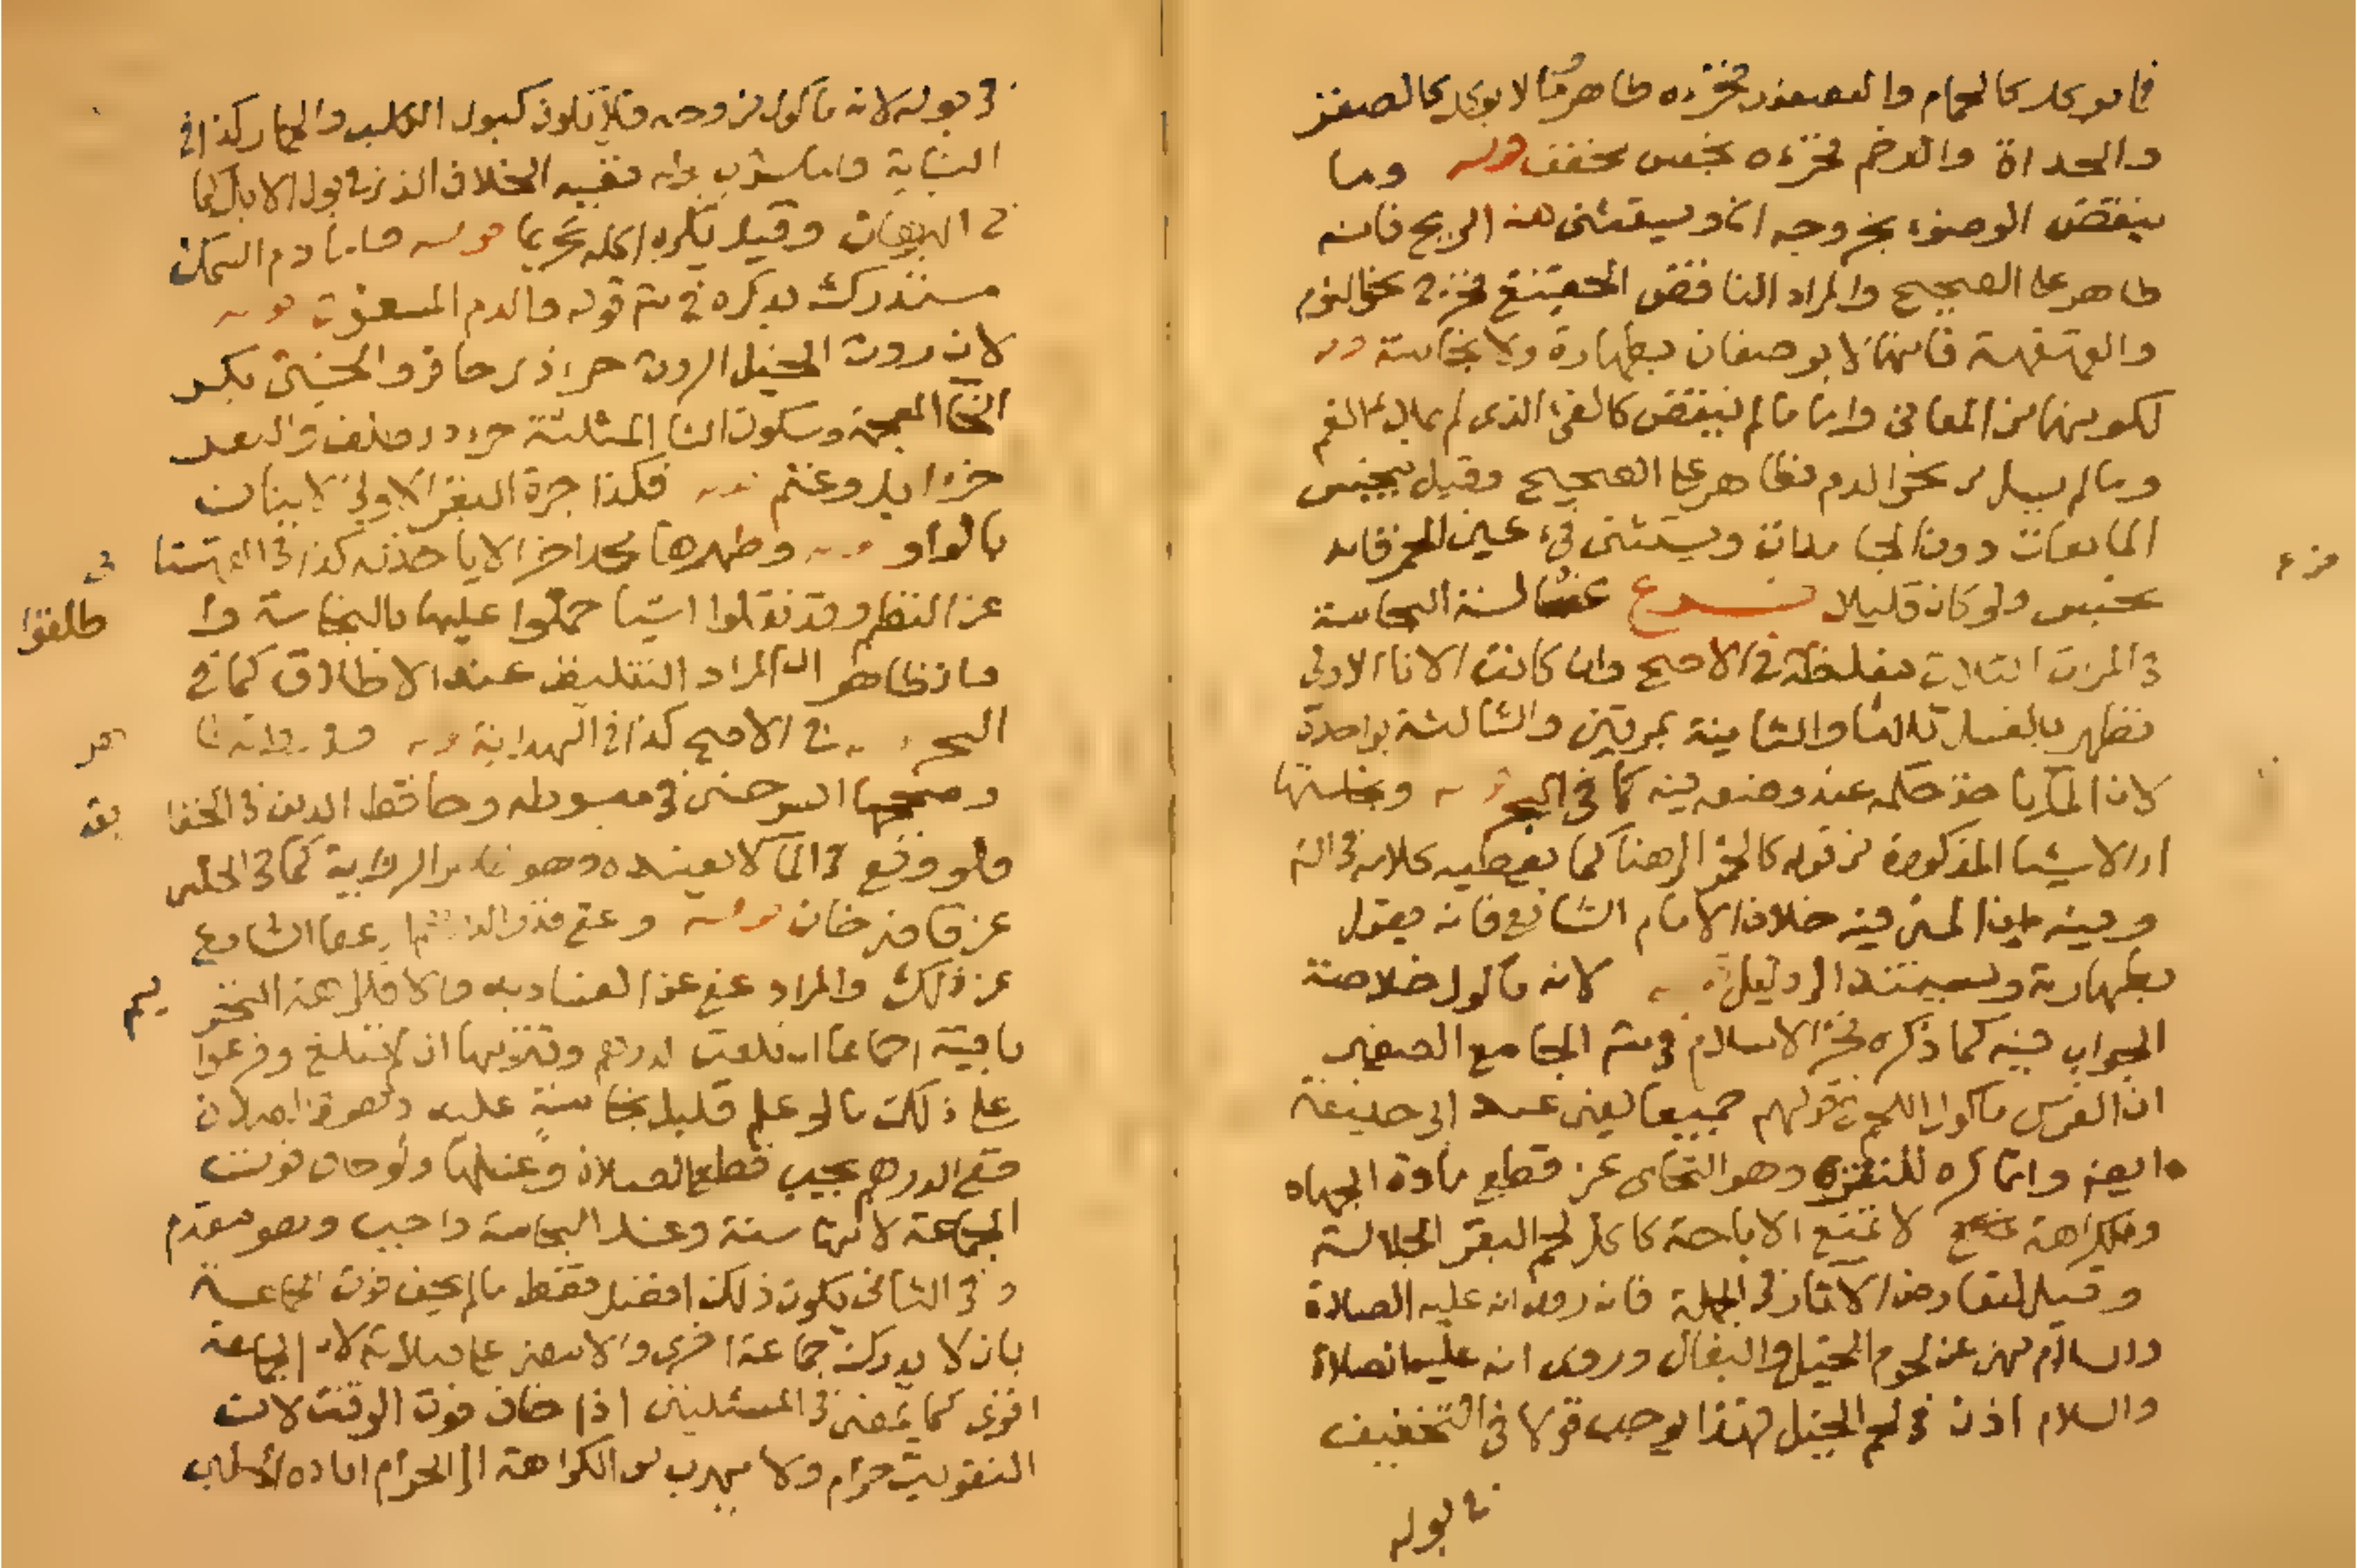 فما يوكل كالحمام والعصفور فخرؤه طاهر وما لا يوكل كالصقر
والحداة والرخم فخرءه نجس مخفف قوله وما
ينقض الوضوء بخروجه الخ ويستثنى منه الريح فانه
طاهر على الصحيح والمراد الناقض الحقيقي فخرج نحو النوم
والقهقهة فانهما لا يوصفان بطهارة ولا نجاسة قوله
لكونهما من المعاني واما ما لم ينقض كالقيء الذي لم يملا الفم
وما لم يسل من نحو الدم فطاهر على الصحيح وقيل ينجس
المايعات دون الجامدات ويستثنى قيء عين الخمر فانه
نجس ولو كان قليلا فرع غسالة النجاسة
في المرات الثلاث مغلظة في الاصح وان كانت الانا الاولى
تطهر بالغسل ثلاثا والثانية بمرتين والثالثة بواحدة
لان الما ياخذ حكمه عند وضعه فيه كما في البحر قوله ونجاستها
اي الاشيا المذكورة من قوله كالخمر الى هنا كما يعطيه كلامه في الشر
وفيه خلاف الامام الشافعي فانه يقول
بطهارته ويستند الى دليل قوله لانه ماكول خلاصة
الجواب فيه كما ذكره فخر الاسلام في شر الجامع الصغير
ان الفرس ماكول اللحم في قولهم جميعا يعني عند ابي حنيفة
ايضا وانما كره للتنزه وهو التحامي عن قطع مادة الجهاد
والكراهة لا تمنع الاباحة كاكل لحم البقر الجلالة
وقيل لتعارض الاثار في الجملة فانه روي انه عليه الصلاة
والسلام نهى عن لحوم الخيل والبغال وروي انه عليه الصلاة
والسلام اذن في لحم الخيل فهذا يوجب قولا في التخفيف
في بوله
فرع
في بوله لانه ماكول من وجه فلا تكون كبول الكلب والحمار كذا في
البناية واما شرب بوله ففيه الخلاف الذي في بول الابل كما
في البرهان وقيل يكره اكله تحريما قوله واما دم السمك
مستدرك بذكره في شر قوله والدم المسفوح قوله
لان روث الخيل الروث خرء ذي حافر والخثي بكسر
الخا المعجمة وسكون الثا المثلثة خرء ذي ظلف والبعر
خرء ابل وغنم قوله فكذا جرة البقر الاولى الاتيان
بالواو قوله وطهرها محمد اخرا لا ياخذ به كذا في القهستا
ني
عن النظم وقد نقلوا اشيا حملوا عليها بالنجاسة وا
طلقوا
فالظاهر ان المراد التغليظ عند الاطلاق كما في
البحر قوله في الاصح كذا في الهداية قوله
وصححها السرخسي في مبسوطه وحافظ الدين في الحقا
يق
ولو وقع في الما لا يفسده وهو ظاهر الرواية كما في الحلبي
عن قاضي خان قوله وعفي قدر الدرهم اي عفا الشارع
عن ذلك والمراد عفي عن الفساد به والا فكراهة التحر
يم
باقية اجماعا ان بلغت الدرهم وتنزيها ان لم تبلغ وفرعوا
على ذلك ما لو علم قليل نجاسة عليه وهو في الصلاة
ففي الدرهم يجب قطع الصلاة وغسلها ولو خاف فوت
الجماعة لانها سنة وغسل النجاسة واجب وهو مقدم
وفي الثاني يكون ذلك افضل فقط ما لم يخف فوت الجماعة
بان لا يدرك جماعة اخرى والا مضى على صلاته لان الجماعة
اقوى كما يمضي في المسئلتين اذا خاف فوت الوقت لان
التفويت حرام ولا مهرب من الكراهة الى الحرام افاده الحلبي